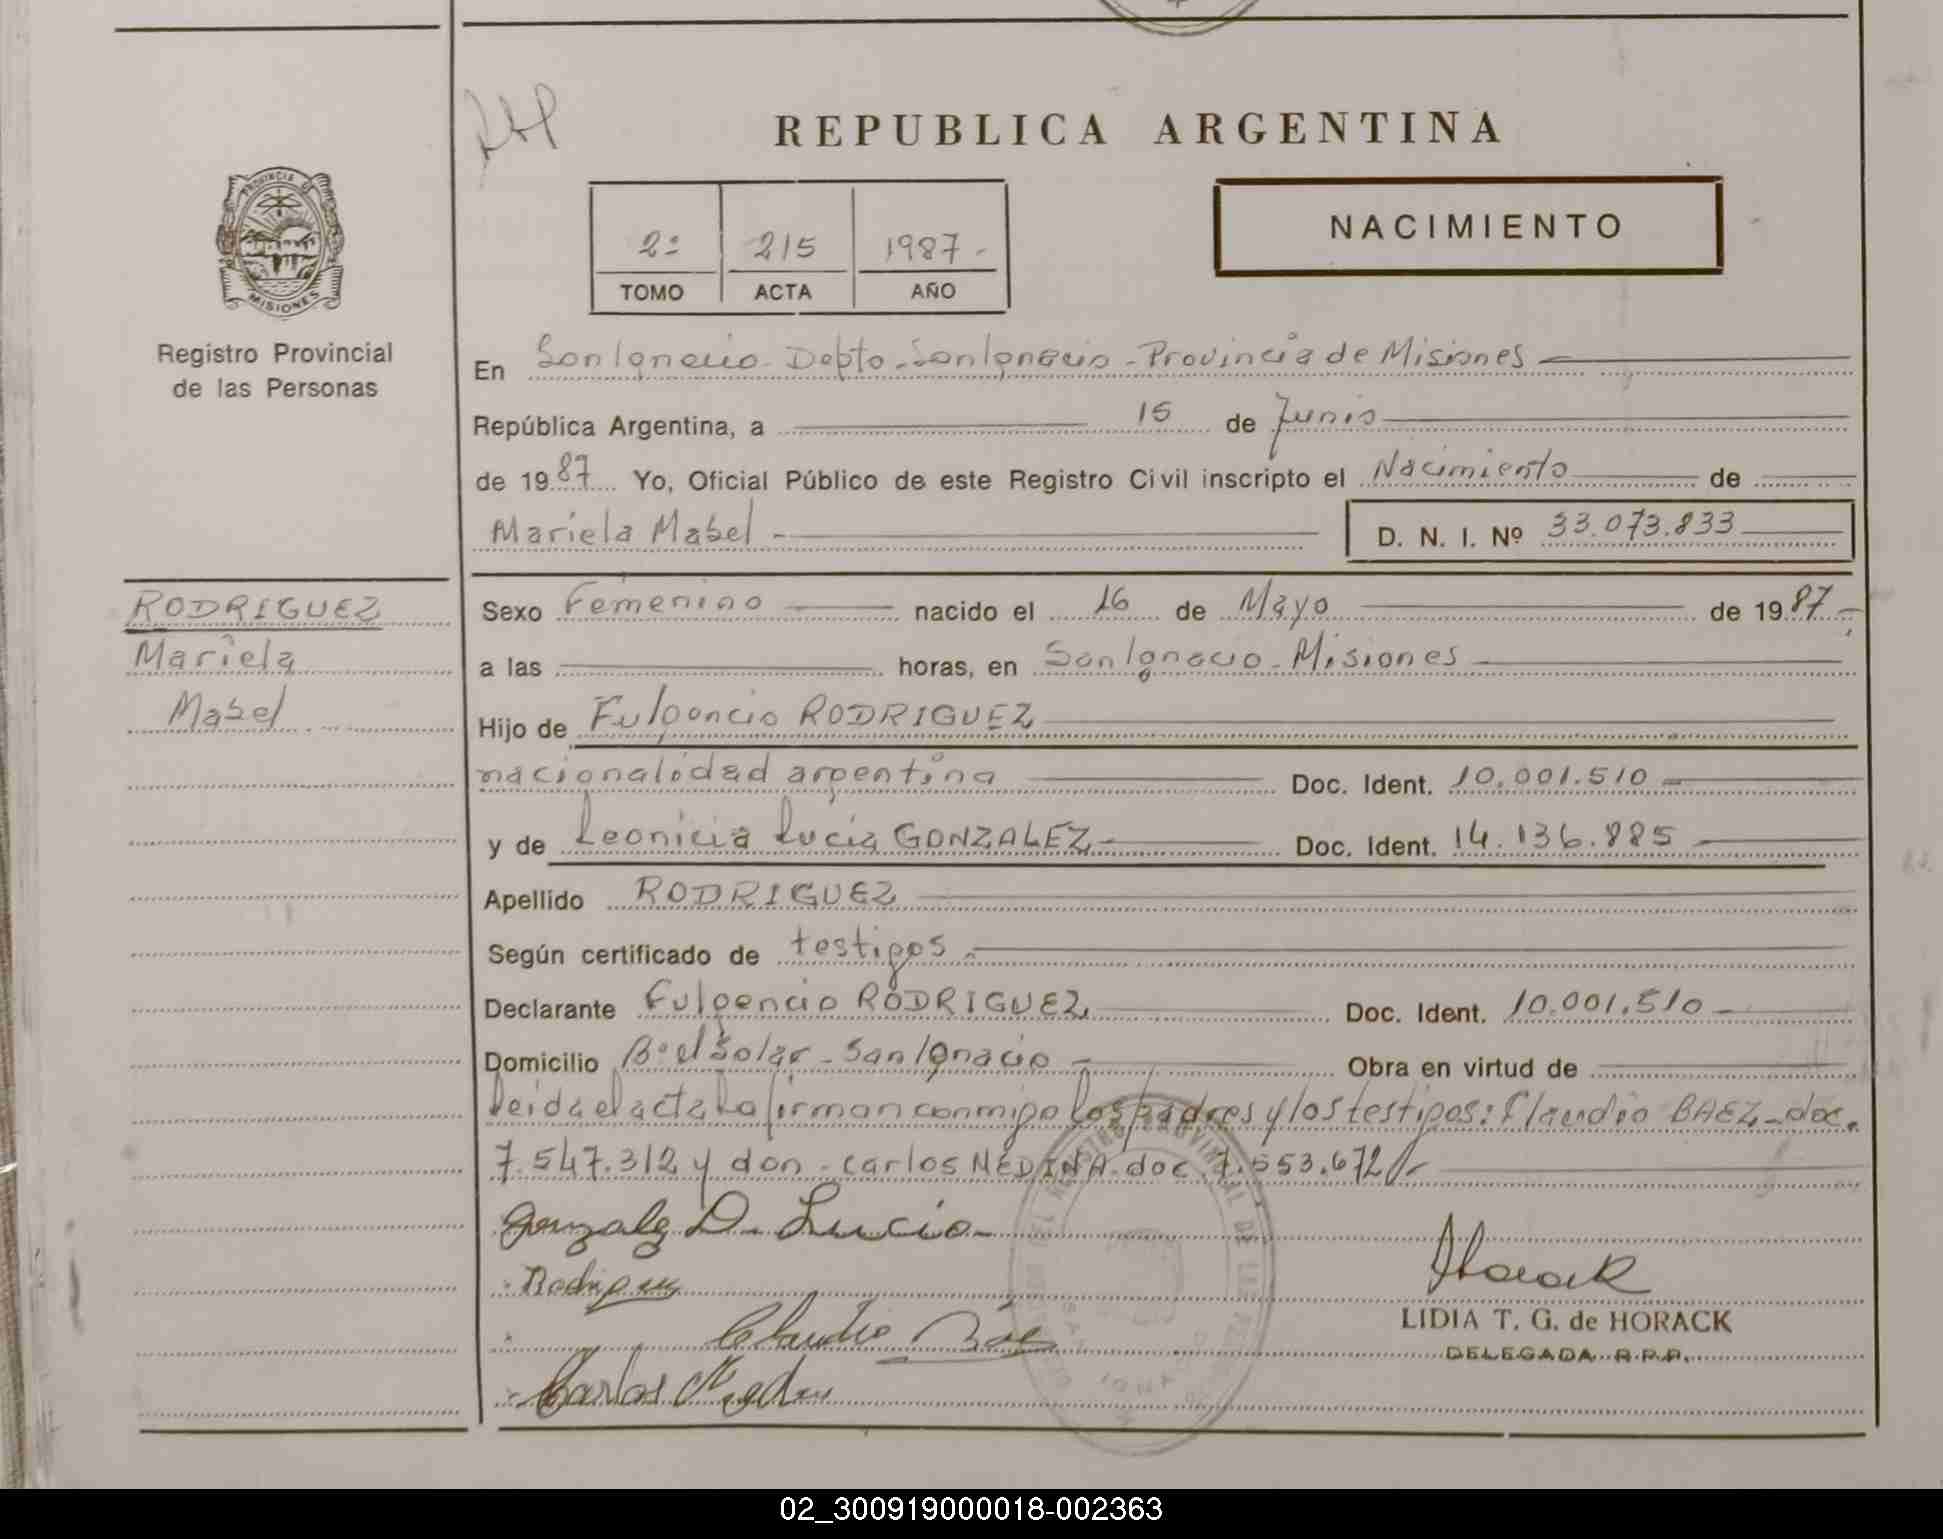 REPUBLICA ARGENTINA
PROVINCIA DE
MISIONES
Registro Provincial
de las Personas
2º 215 1987-
TOMO ACTA AÑO
NACIMIENTO
En San Ignacio - Depto - San Ignacio - Provincia de Misiones
República Argentina, a 15 de Junio
de 1987 Yo, Oficial Público de este Registro Civil inscripto el Nacimiento de
Mariela Mabel - D. N. I. Nº 33.073.833
RODRIGUEZ
Mariela
Mabel
Sexo Femenino nacido el 16 de Mayo de 1987.-
a las horas, en San Ignacio - Misiones
Hijo de Fulgencio RODRIGUEZ
nacionalidad argentina Doc. Ident. 10.001.510 -
y de Leonicia Lucia GONZALEZ - Doc. Ident. 14.136.885
Apellido RODRIGUEZ
Según certificado de testigos.-
Declarante Fulgencio RODRIGUEZ Doc. Ident. 10.001.510 -
Domicilio Bº el Solar - San Ignacio - Obra en virtud de
Leida el acta la firman conmigo los padres y los testigos: Claudio BAEZ - doc.
7.547.312 y don - Carlos MEDINA - doc. 7.553.672
Gonzalez D. Lucia
Rodriguez
Claudio Báe
Carlos Medin
Horack
LIDIA T. G. de HORACK
DELEGADA R.P.P.
02_300919000018-002363